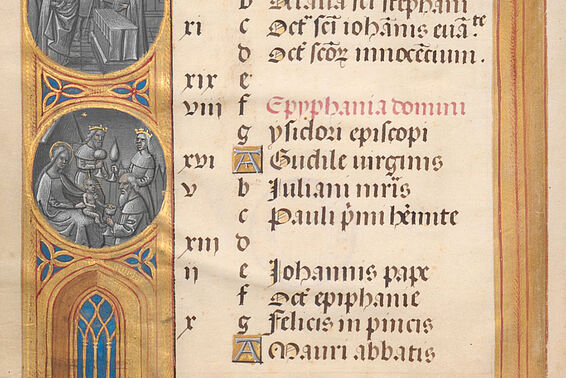 b Octava sci stephani
xi c Oct̄ scī iohānis euāte
d Oct̄ scōꝝ innocēncium .
xix e
viii f Epyphania domini
g ysidori episcopi
xvi A Gudile uirginis
v b Juliani mr̄is
c Pauli p̄mi hēmite
xiii d
ii e Johannis pape
f Oct̄ epiphanie
x g Felicis in pincis
A Mauri abbatis